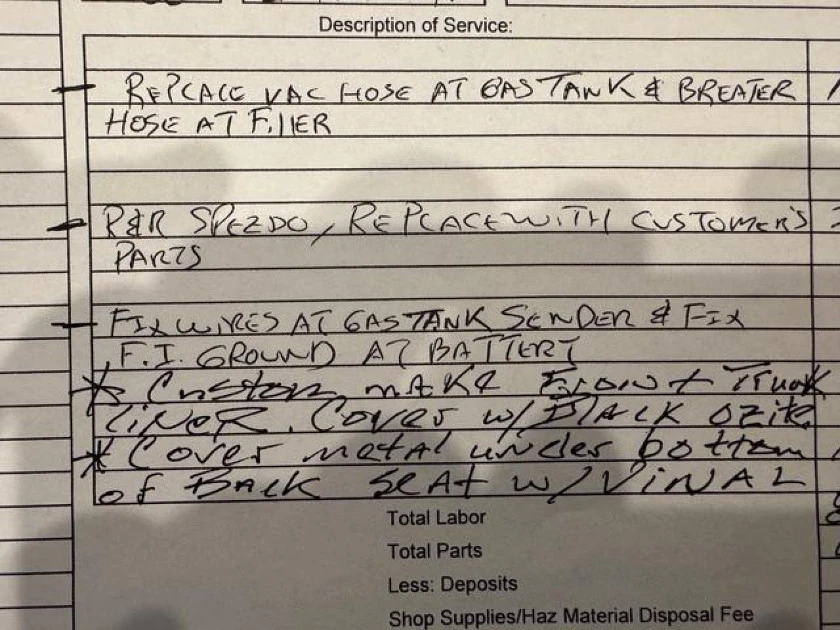 Description of Service:
- REPLCACE VAC HOSE AT GAS TANK & BREATER
HOSE AT FILLER
- R&R SPEEDO, REPLACE WITH CUSTOMER'S
PARTS
- FIX WIRES AT GAS TANK SENDER & FIX
F.I. GROUND AT BATTERY
* Custom make Front Trunk
LINER. Cover w/ BLACK OZite
* Cover metal under bottom
of BACK SEAT w/ VINAL
Total Labor
Total Parts
Less: Deposits
Shop Supplies/Haz Material Disposal Fee